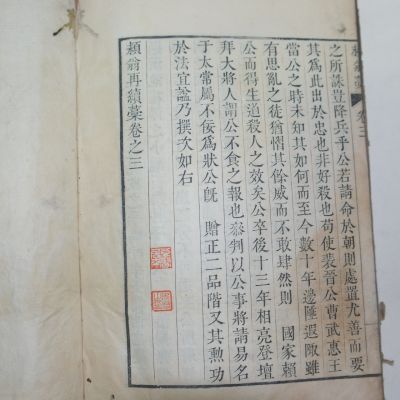 之所誅豈降兵乎公若請命於朝則處置尤善而要
其為此出於忠也非好殺也苟使裴晉公曹武惠王
當公之時未知其如何而至今數十年邊陲遐陬雖
有思亂之徒猶惜其餘威而不敢肆然則 國家賴
公而得生道殺人之效矣公卒後十三年相亮登壇
拜大將人謂公不食之報也叅判以公事將請易名
于太常屬不佞為狀公旣 贈正二品階又其勲功
於法宜謚乃撰次如右
頴翁再續藁卷之三
卷三